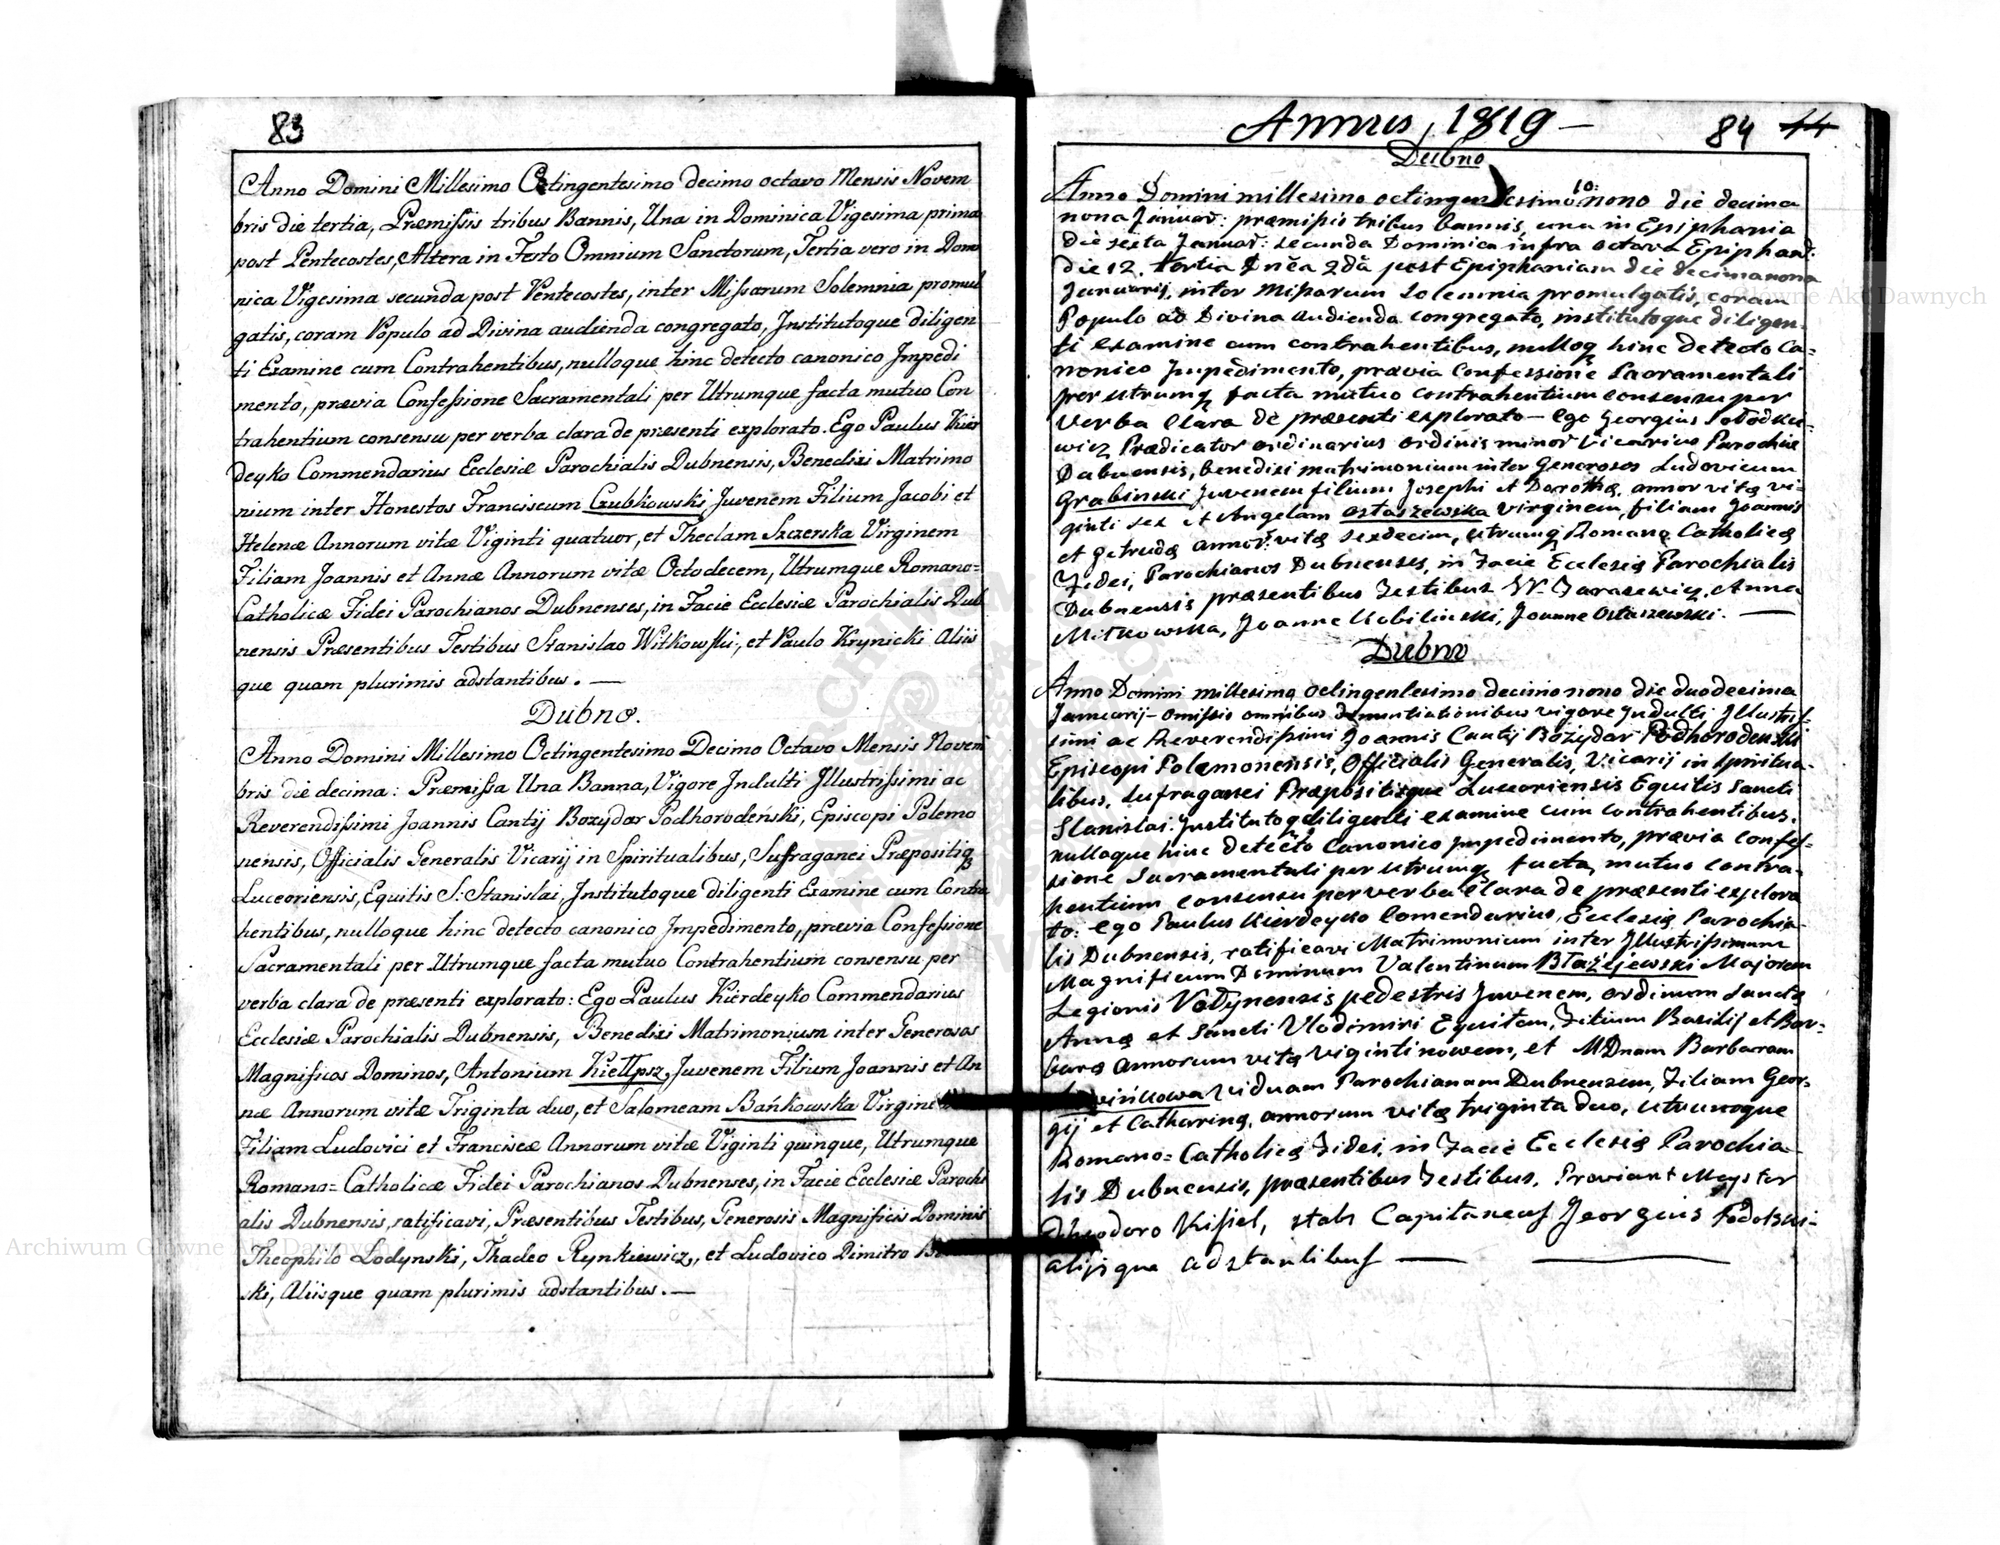 83
Anno Domini Millesimo Octingentesimo decimo octavo Mensis Novem
bris die tertia, Præmissis tribus Bannis, Una in Dominica Vigesima prima
post Pentecostes, Altera in Festo Omnium Sanctorum, Tertia vero in Domi
nica Vigesima secunda post Pentecostes, inter Missarum Solemnia promul
gatis, coram Populo ad Divina audienda congregato, Institutoque diligen
ti Examine cum Contrahentibus, nulloque hinc detecto canonico Impedi
mento, prævia Confessione Sacramentali per Utrumque facta mutuo Con
trahentium consensu per verba clara de præsenti explorato. Ego Paulus Kier
deyko Commendarius Ecclesiæ Parochialis Dubnensis, Benedixi Matrimo
nium inter Honestos Franciscum Czubkowski, Juvenem Filium Jacobi et
Helenæ Annorum vitæ Viginti quatuor, et Theclam Szczerska Virginem
Filiam Joannis et Annæ Annorum vitæ Octodecem, Utrumque Romano=
Catholicæ Fidei Parochianos Dubnenses, in Facie Ecclesiæ Parochialis Dub
nensis Præsentibus Testibus Stanislao Witkowski, et Paulo Krynicki Aliis
que quam plurimis adstantibus. —
Dubno.
Anno Domini Millesimo Octingentesimo Decimo Octavo Mensis Novem
bris die decima: Præmissa Una Banna, Vigore Indulti Illustrissimi ac
Reverendissimi Joannis Cantij Bożydar Podhorodeński, Episcopi Polemo
nensis, Officialis Generalis Vicarij in Spiritualibus, Suffraganei Præpositiq
Luceoriensis, Equitis S: Stanislai, Institutoque diligenti Examine cum Contra
hentibus, nulloque hinc detecto canonico Impedimento, prævia Confessione
Sacramentali per Utrumque facta mutuo Contrahentium consensu per
verba clara de præsenti explorato: Ego Paulus Kierdeyko Commendarius
Ecclesiæ Parochialis Dubnensis, Benedixi Matrimonium inter Generosos
Magnificos Dominos, Antonium Kiełłpsz, Juvenem Filium Joannis et An
næ Annorum vitæ Triginta duo, et Salomeam Bańkowska Virginem
Filiam Ludovici et Franciscæ Annorum vitæ Viginti quinque, Utrumque
Romano= Catholicæ Fidei Parochianos Dubnenses, in Facie Ecclesiæ Parochi
alis Dubnensis, ratificavi, Præsentibus Testibus, Generosis Magnificis Dominis
Theophilo Łodynski, Thadeo Rynkiewicz, et Ludovico Dimitro
ski, Aliisque quam plurimis adstantibus. —
Annus 1819 —
84 44
Dubno
Anno Domini millesimo octingentesimo 10: nono die decima
nona Januar: præmissis tribus bannis, una in Epiphania
die sexta Januar: secunda Dominica infra octava Epiphan:
die 12. tertia Dnĉa 2dâ post Epiphaniam die decimanona
Januarij, inter Missarum solemnia promulgatis, coram
Populo ad Divina audienda congregato, institutoque diligen-
ti examine cum contrahentibus, nulloq hinc detecto Ca=
nonico Impedimento, prævia Confessione Sacramentali
per utrumq facta mutuo contrahentium consensu per
verba clara de præsenti explorato — Ego Georgius
wicz Prædicator ordinarius ordinis minor Vicarius Parochiæ
Dubnensis, benedixi matrimonium inter Generosos Ludovicum
Grabinski Juvenem filium Josephi et Dorothæ, annor vitę vi=
ginti sex et Angelam Ostaszewska virginem, filiam Joannis
et Getrudę annor: vitę sexdecim, utrumq Romanę Catholicę
Fidei, Parochianos Dubnenses, in Facie Ecclesię Parochialis
Dubnensis præsentibus Testibus W. Jarasewicz, Anna
Mitkowska, Joanne Kobilinski, Joanne Ostaszewski. —
Dubno
Anno Domini millesimo octingentesimo decimo nono die duodecima
Januarij — omissis omnibus denuntiationibus vigore Indulti Illustris-
simi ac Reverendissimi Joannis Cantij Bożydar Podhorodenski
Episcopi Polemonensis, Officialis Generalis, Vicarij in spiritua-
libus, Sufraganei Præpositisque Luceoriensis Equitis Sancti
Stanislai. Institutoq diligenti examine cum contrahentibus.
nulloque hinc detecto Canonico impedimento, prævia confes=
sione Sacramentali per utrumq facta, mutuo contra-
hentium consensu per verba clara de præsenti explora
to: Ego Paulus Kierdeyko Comendarius, Ecclesię Parochia-
lis Dubnensis, ratificavi Matrimonium inter Illustrissimum
Magnificum Dominum Valentinum Błażejewski Majorem
Legionis Vołynensis pedestris Juvenem, ordinum Sanctę
Annę et Sancti Vladimiri Equitem, Filium Basilij et Bar=
barę annorum vitę viginti novem, et MDnam Barbaram
viduam Parochianam Dubnensem, Filiam Geor-
gij et Catharinę, annorum vitę triginta duo, utrumque
Romano= Catholicę Fidei, in Facie Ecclesię Parochia-
lis Dubnensis, præsentibus Testibus, Proviant Meyster
Theodoro Kissiel, stabs Capitaneus Georgius Podolski-
alijsque adstantibus —— ———
Archiwum Główne Akt Dawnych
Archiwum Główne Akt Dawnych